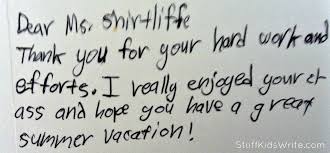 Dear Ms. Shirtliffe
Thank you for your hard work and
efforts. I really enjoyed your cl
ass and hope you have a great
summer vacation!
StuffKidsWrite.com